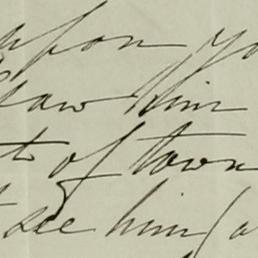 upon yo
saw him
t of town
t see him (a